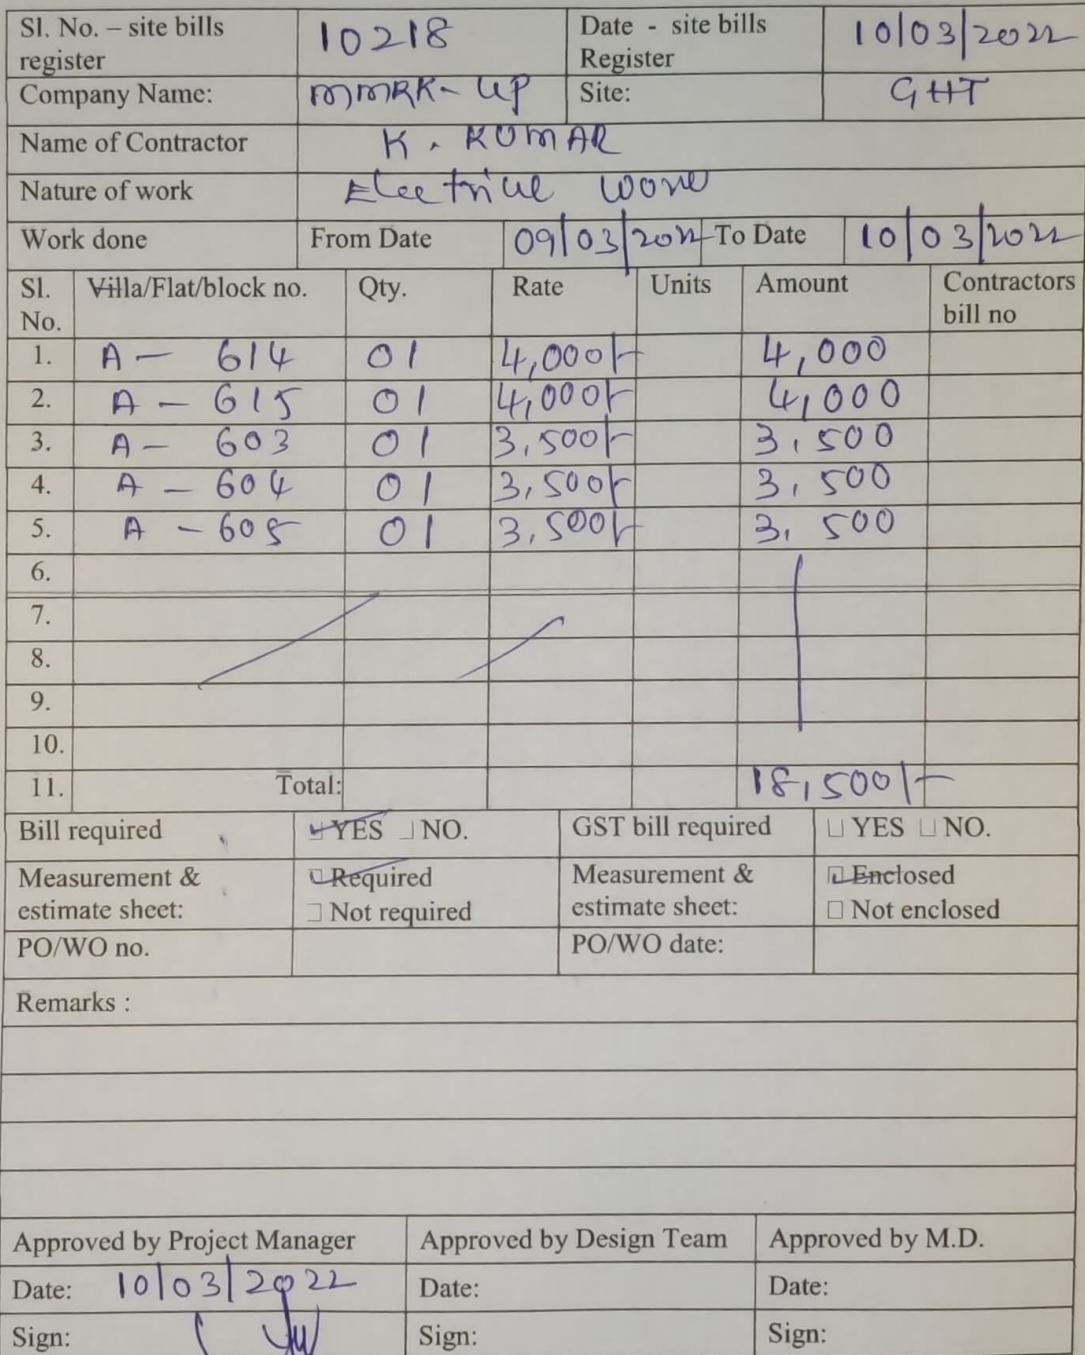 Sl. No. – site bills register 10218 Date - site bills Register 10/03/2022
Company Name: MMRK-UP Site: GHT
Name of Contractor K. KUMAR
Nature of work Electrical
Work done From Date 09/03/2022 To Date 10/03/2022
Sl. No. Villa/Flat/block no. Qty. Rate Units Amount Contractors bill no
1. A - 614 01 4,000/- 4,000
2. A - 615 01 4,000/- 4,000
3. A - 603 01 3,500/- 3,500
4. A - 604 01 3,500/- 3,500
5. A - 605 01 3,500/- 3,500
6.
7.
8.
9.
10.
11. Total: 18,500/-
Bill required YES NO. GST bill required YES NO.
Measurement & estimate sheet: Required Measurement & estimate sheet: Enclosed
Not required Not enclosed
PO/WO no. PO/WO date:
Remarks :
Approved by Project Manager Approved by Design Team Approved by M.D.
Date: 10/03/2022 Date: Date:
Sign: Sign: Sign: